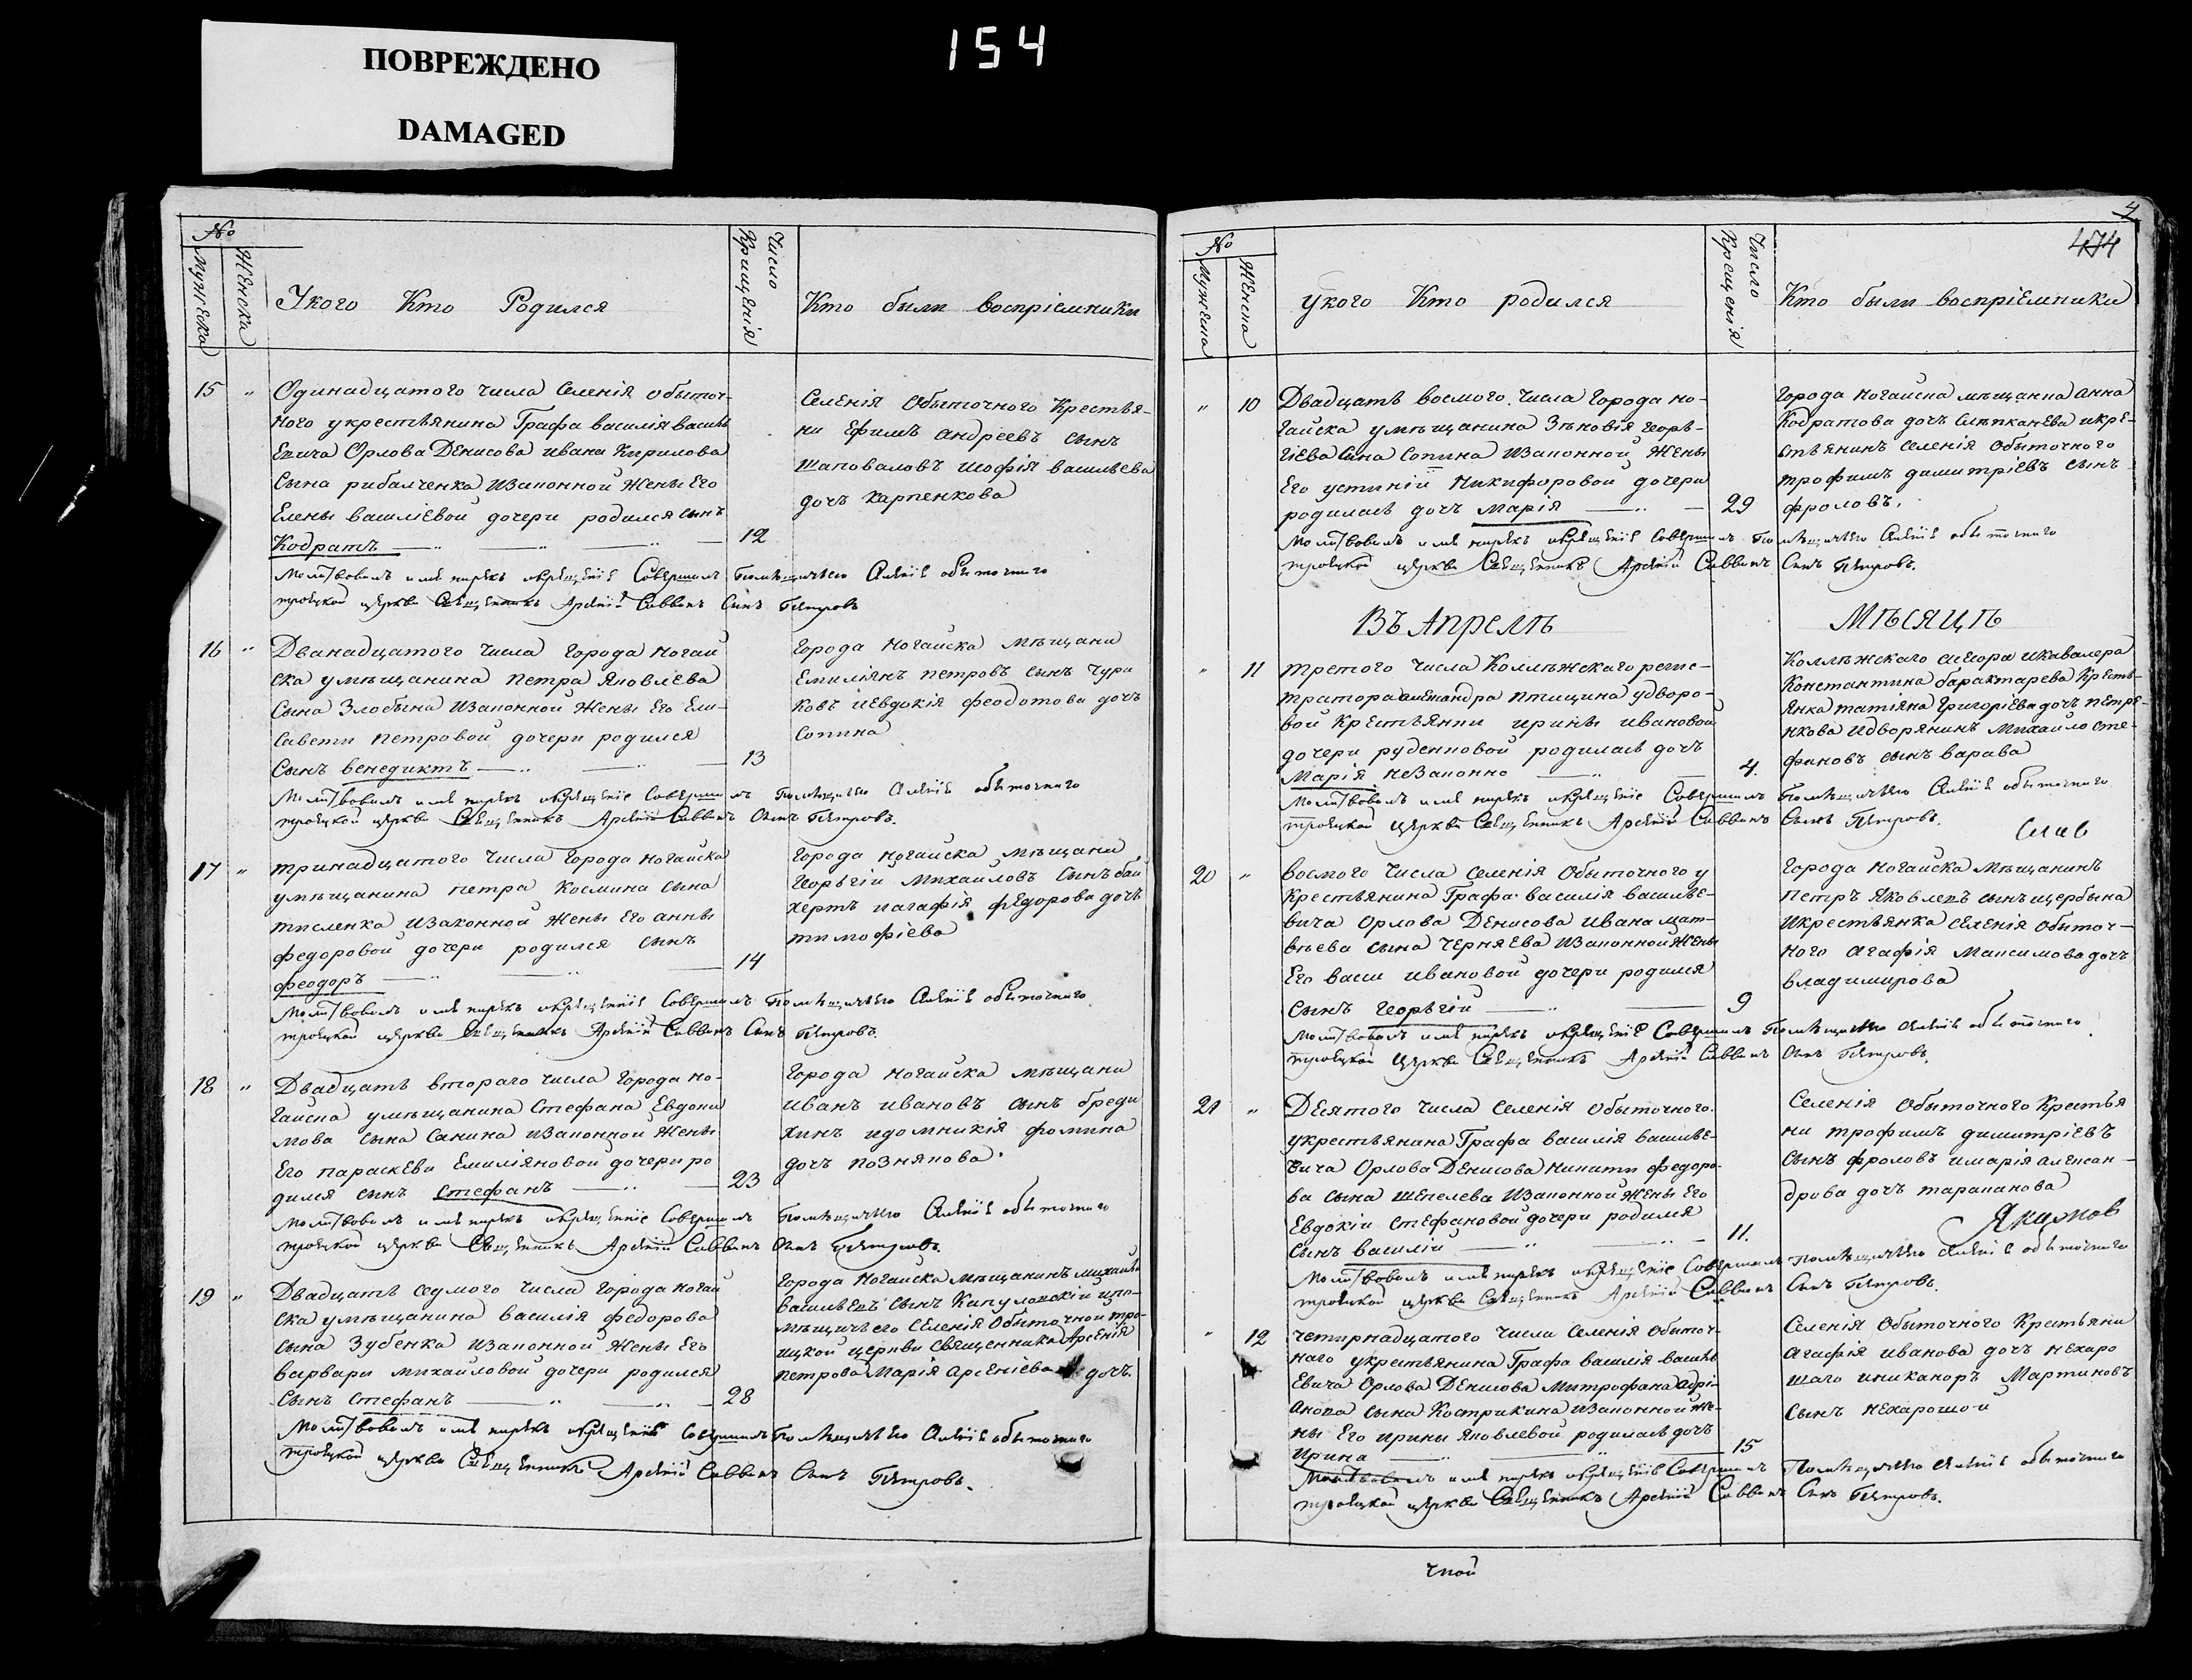 ПОВРЕЖДЕНО
DAMAGED
154
№
Мужеска
Женска
Укого Кто Родился
Число Крищенія
Кто были воспріемники
15 "
Одинадцатого числа Селенія обыточ-
ного укрестьянина Графа василія василь
евича Орлова Денисова ивана Кирилова
Сына рибалченка Изаконной Жены Его
Елены василіевой дочери родился сынъ
Кодратъ
12
Селенія Обыточного Крестья-
ни Ефимъ андреевъ сынъ
шаповаловъ исофія васильева
дочъ карпенкова
Молитвовалъ имя нарекъ икрещеніе Совершилъ Помѣщичьего Селенія обыточного
троецкой церкви Священникъ Арсеній Саввинъ Сынъ Петровъ
16 "
Дванадцатого Числа города Ногай
ска умѣщанина петра Яковлева
Сына Злобына Изаконной Жены Его Ели-
савети петровой дочери родился
Сынъ венедиктъ
13
города Ногайска мѣщани
Емиліянъ петровъ сынъ Чури
ковъ иевдокія феодотова дочъ
Сопина
Молитвовалъ имя нарекъ икрещеніе Совершилъ Помѣщичьего Селенія обыточного
троецкой церкви Священникъ Арсеній Саввинъ Сынъ Петровъ.
17 "
тринадцатого Числа города ногайска
умѣщанина петра Космина сына
тисленка Изаконной Жены Его анны
федоровой дочери родился сынъ
феодоръ
14
города ногайска мѣщани
георьгій Михайловъ Сынъ бай
хертъ иагафія федорова дочъ
тимофіева
Молитвовалъ имя нарекъ икрещеніе Совершилъ Помѣщичьего Селенія обыточного
троецкой церкви Священникъ Арсеній Саввинъ Сынъ Петровъ.
18 "
Двадцать второго числа города но-
гайска умѣщанина Стефана Евдоки
мова сына Санина изаконной Жены
Его параскеви Емиліяновой дочери ро
дился сынъ стефанъ
23
города ногайска мѣщани
иванъ ивановъ сынъ бреди
хинъ идомникія фомина
дочъ познякова.
Молитвовалъ имя нарекъ икрещеніе Совершилъ Помѣщичьего Селенія обыточного
троецкой церкви Священникъ Арсеній Саввинъ Сынъ Петровъ.
19 "
Двадцать седмого числа города ногай
ска умѣщанина василія федорова
сына Зубенка изаконной Жены Его
варвари михайловой дочери родился
Сынъ Стефанъ
28
города Ногайска мѣщанинъ михаилъ
васильевъ сынъ Капуловскій ипо-
мѣщичьего Селенія Обыточной тро-
ицкой церкви священника Арсенія
петрова Марія арсеніева дочъ.
Молитвовалъ имя нарекъ икрещеніе Совершилъ Помѣщичьего Селенія обыточного
троецкой церкви Священникъ Арсеній Саввинъ Сынъ Петровъ.
4
474
№
Мужеска
Женска
укого Кто родился
Число Крещенія
Кто были воспріемники
" 10
Двадцать восмого числа города но-
гайска умѣщанина Зѣновія георь-
гіева Сына Сопина изаконной Жены
Его устиніи Никифоровой дочери
родилась дочъ марія
29
города ногайска мѣщанка анна
Кодратова дочъ слѣпканева икре-
стьянинъ селенія обыточного
трофимъ димитріевъ сынъ
фроловъ.
Молитвовалъ имя нарекъ икрещеніе Совершилъ Помѣщичьего Селенія обыточного
троецкой церкви Священникъ Арсеній Саввинъ Сынъ Петровъ.
Въ Апрелѣ Мѣсяцѣ
" 11
третого Числа Коллѣжскаго регис-
тратора александра птицина удворо-
вой Крестьянки ирины ивановой
дочери руденковой родилась дочъ
Марія незаконно
4.
Коллѣжскаго асесора икавалера
Константина барактарева Кресть-
янка татіяна григоріева дочъ петре-
нкова идворянинъ михайло сте-
фановъ сынъ варава
Молитвовалъ имя нарекъ икрещеніе Совершилъ Помѣщичьего Селенія обыточного
троецкой церкви Священникъ Арсеній Саввинъ Сынъ Петровъ.
20 "
восмого Числа селенія Обыточного у
Крестьянина Графа василія василье-
вича Орлова Денисова Ивана мат-
вѣева сына Черняева Изаконной Жены
Его васи ивановой дочери родился
сынъ георьгій
9
города ногайска мѣщанинъ
петръ яковлевъ сынъ щербына
икрестьянка селенія обыточ-
ного агафія максимова дочъ
владимирова
Молитвовалъ имя нарекъ икрещеніе Совершилъ Помѣщичьего Селенія обыточного
троецкой церкви Священникъ Арсеній Саввинъ Сынъ Петровъ.
21 "
Десятого числа селенія Обыточного
укрестьянина Графа василія василье-
вича Орлова Денисова никити федоро-
ва сына шепелева Изаконной Жены Его
Евдокіи стефановой дочери родился
сынъ василій
11.
Селенія Обыточного Крестья
ни трофимъ димитріевъ
сынъ фроловъ имарія алексан-
дрова дочъ тарапанова
Молитвовалъ имя нарекъ икрещеніе Совершилъ Помѣщичьего Селенія обыточного
троецкой церкви Священникъ Арсеній Саввинъ Сынъ Петровъ.
" 12
четирнадцатого числа селенія Обыточ-
наго укрестьянина Графа василія василь
Евича Орлова Денисова Митрофана адрі-
анова сына Кострикина изаконной Же-
ны Его ирины яковлевой родилась дочъ
Ирина
15
Селенія Обыточного Крестьяни
агафія иванова дочъ нехаро
шаго иниканоръ Мартиновъ
сынъ нехарошой
Молитвовалъ имя нарекъ икрещеніе Совершилъ Помѣщичьего Селенія обыточного
троецкой церкви Священникъ Арсеній Саввинъ Сынъ Петровъ.